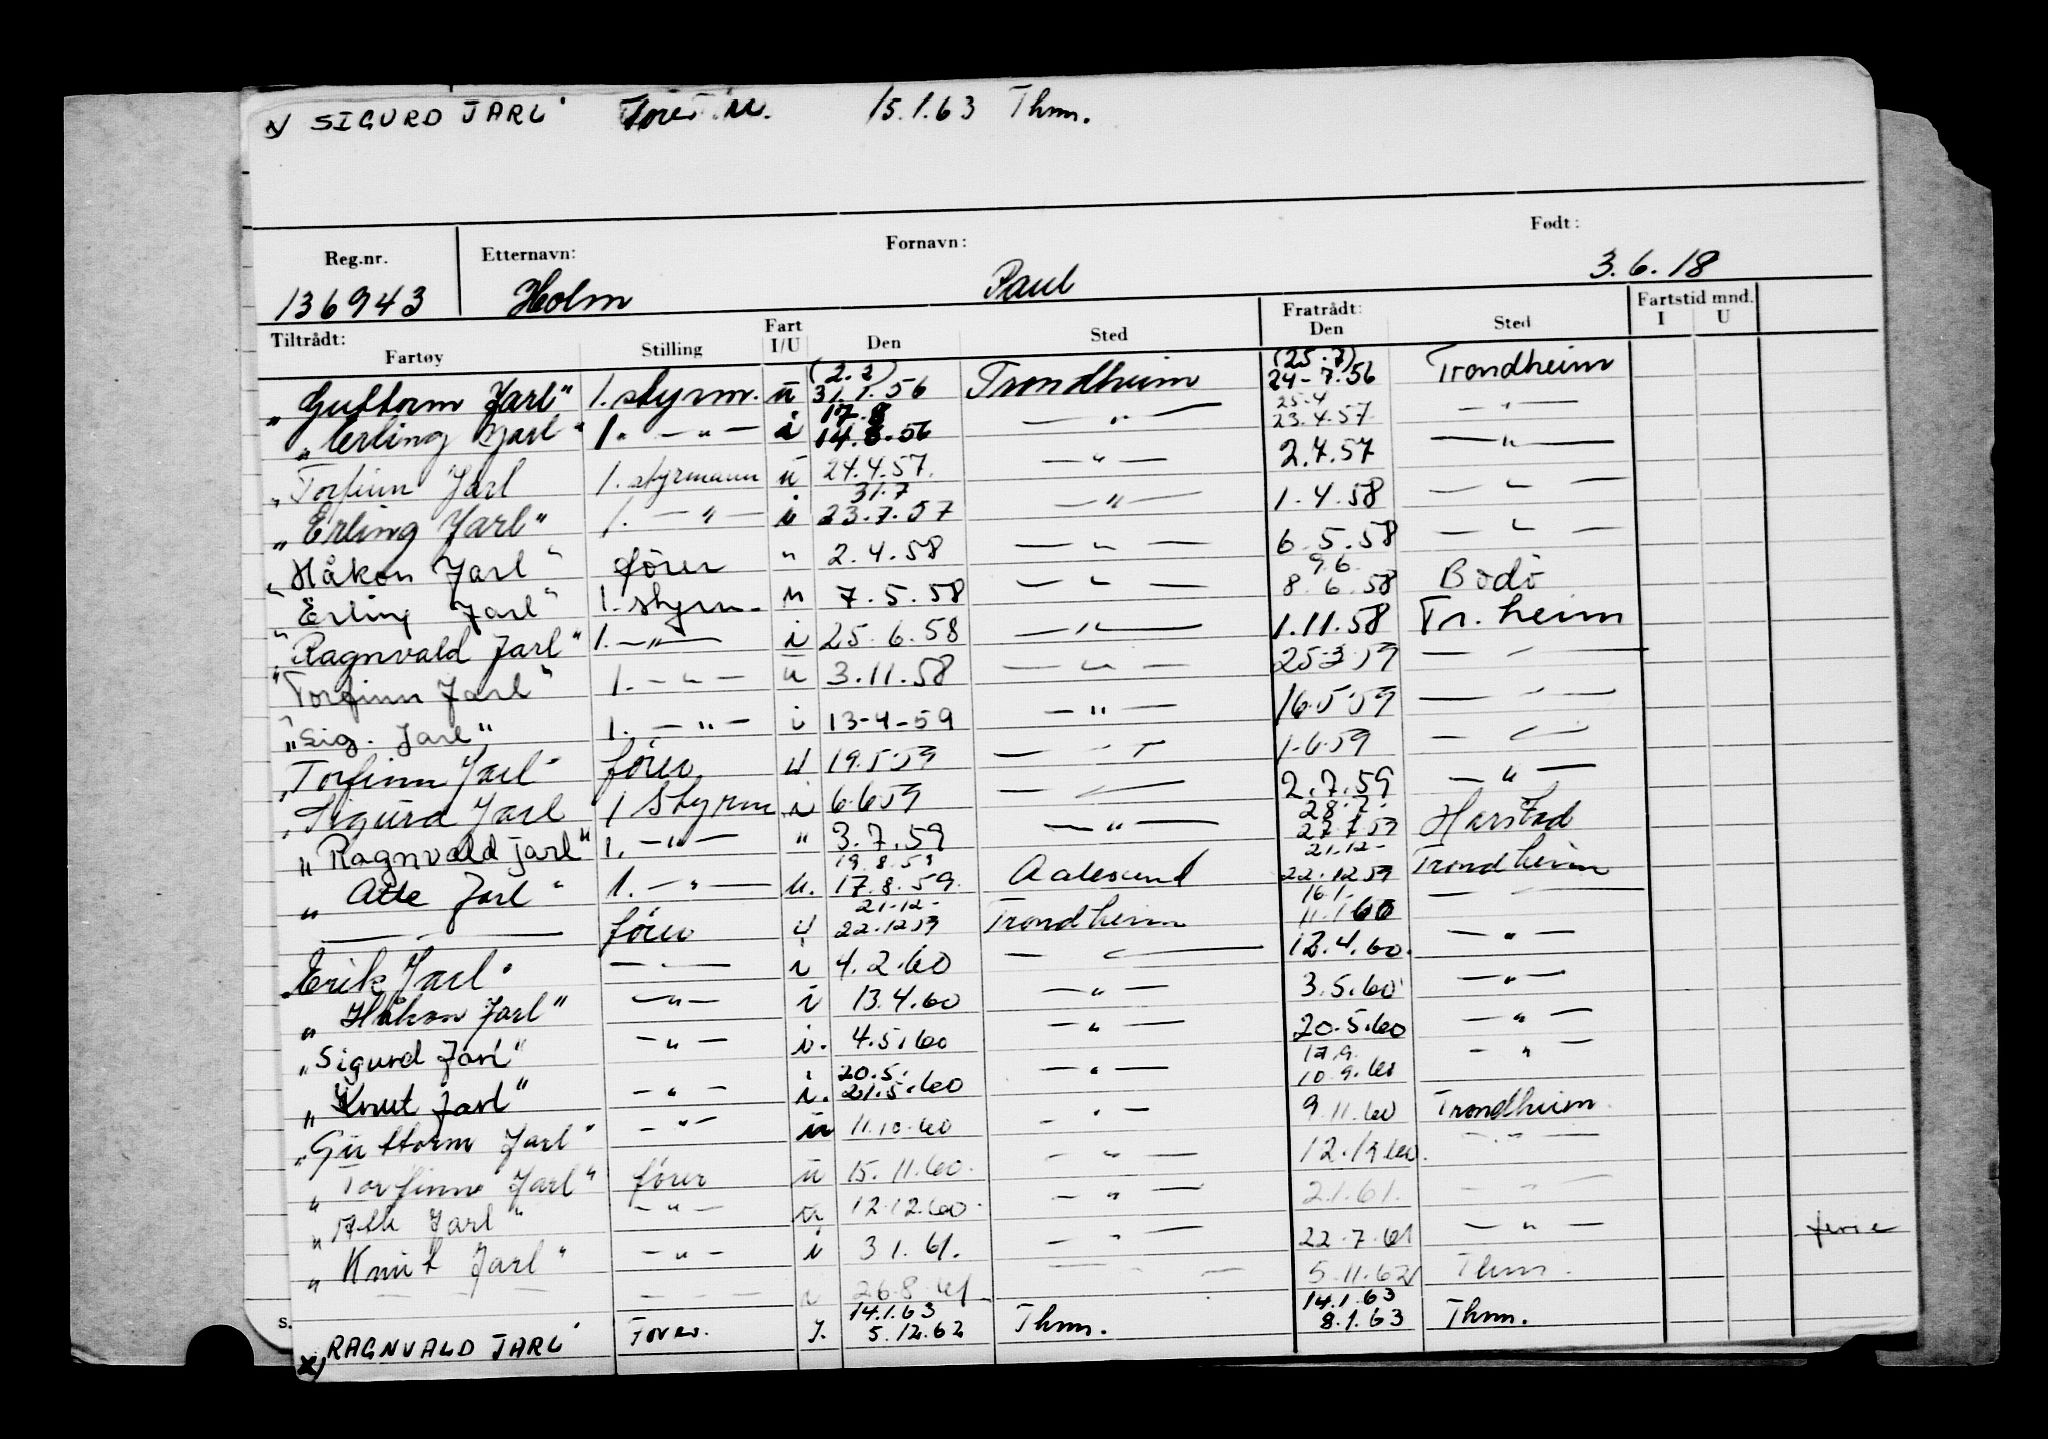 x) SIGURD JARL" Förer. U. 15.1.63 Thm.
Reg.nr. Etternavn: Fornavn: Født:
136943 Holm Paul 3.6.18
Tiltrådt: Fratrådt: Fartstid mnd.
Fartøy Stilling Fart I/U Den Sted Den Sted I U
(2.2) (25.7)
"Guttorm Jarl" 1. styrm. u 31.1.56 Trondheim 24-7.56 Trondheim
17.8 25.4
"Erling Jarl" 1. — " — i 14.8.56 — " — 23.4.57 — " —
"Torfinn Jarl 1. styrmann u 24.4.57. — " — 2.7.57 — " —
31.7
"Erling Jarl" 1. — " — i 23.7.57 — " — 1.4.58 — " —
"Håkon Jarl" förer " 2.4.58 — " — 6.5.58 — " —
9.6.
"Erling Jarl" 1. styrm. " 7.5.58 — " — 8.6.58 Bodö
"Ragnvald Jarl" 1. — " — i 25.6.58 — " — 1.11.58 Tr.heim
"Torfinn Jarl" 1. — " — u 3.11.58 — " — 25.3.59 — " —
"Sig. Jarl" 1. — " — i 13-4-59 — " — 16.5.59 — " —
"Torfinn Jarl" förer u 19.5.59 — " — 1.6.59 — " —
"Sigurd Jarl 1 Styrm i 6.6.59 — " — 2.7.59 — " —
28.7.
"Ragnvald jarl" 1. — " — " 3.7.59 — " — 27.7.59 Harstad
19.8.59 21.12-
"Atle Jarl" 1. — " — u. 17.8.59. Aalesund 22.12.59 Trondheim
21.12- 16.1.
— " — förer u 22.12.59 Trondheim 11.1.60 — " —
"Erik Jarl" — " — i 4.2.60 — " — 12.4.60. — " —
"Håkon Jarl" — " — i 13.4.60 — " — 3.5.60 — " —
"Sigurd Jarl" — " — i. 4.5.60 — " — 20.5.60 — " —
20.5. 17.9.
"Knut Jarl" — " — i. 21.5.60 — " — 10.9.60 — " —
"Guttorm Jarl" — " — u 11.10.60 — " — 9.11.60 Trondheim.
"Torfinn Jarl" förer u 15.11.60. — " — 12.12.60. — " —
"Atle Jarl" — " — u 12.12.60. — " — 2.1.61. — " —
"Knut Jarl" — " — i 3 1.61. — " — 22.7.61 — " — ferie
— — — — — — i 26.8.61 — — — 5.11.62 Thm.
14.1.63 14.1.63
x) RAGNVALD JARL" Förer. I. 5.12.62 Thm. 8.1.63 Thm.
s.